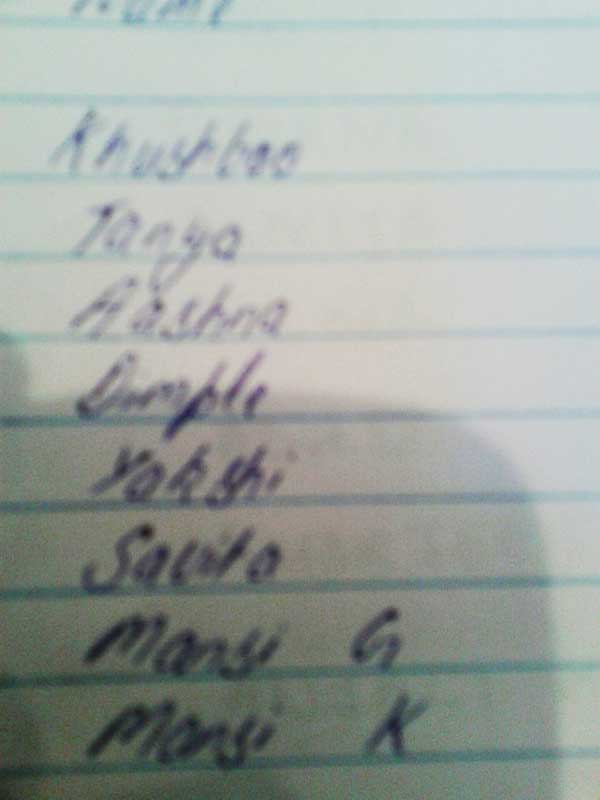 Name
Khushboo
Tanya
Aashna
Dimple
Yakshi
Savita
Mansi G
Mansi K